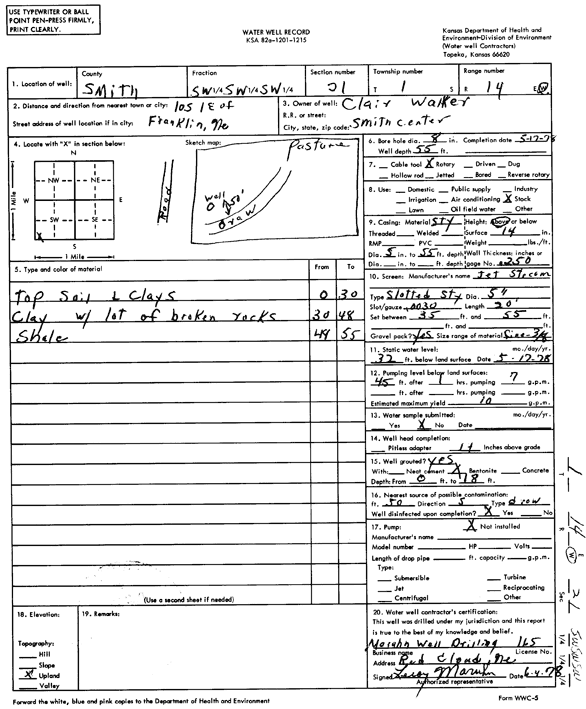 USE TYPEWRITER OR BALL
POINT PEN-PRESS FIRMLY,
PRINT CLEARLY.
WATER WELL RECORD
KSA 82a-1201-1215
Kansas Department of Health and
Environment-Division of Environment
(Water well Contractors)
Topeka, Kansas 66620
1. Location of well: County Smith Fraction SW 1/4 SW 1/4 SW 1/4 Section number Township number T 1 S Range number R 14 E/W
2. Distance and direction from nearest town or city: 10S 1E of
Street address of well location if in city: Franklin, Ne
3. Owner of well: Clair Walker
R.R. or street:
City, state, zip code: Smith Center
4. Locate with "X" in section below:
N
NW NE
W E
SW SE
X
S
1 Mile
1 Mile
Sketch map:
Road
Pasture
Well
50'
Draw
5. Type and color of material From To
Top Soil & Clays 0 30
Clay w/ lot of broken rocks 30 48
Shale 48 55
(Use a second sheet if needed)
6. Bore hole dia. 8 in. Completion date 5-17-78
Well depth 55 ft.
7. Cable tool X Rotary Driven Dug
Hollow rod Jetted Bored Reverse rotary
8. Use: Domestic Public supply Industry
Irrigation Air conditioning X Stock
Lawn Oil field water Other
9. Casing: Material Sty Height: Above or below
Threaded Welded Surface 14 in.
RMP PVC Weight lbs./ft.
Dia. 5 in. to 55 ft. depth Wall Thickness: inches or
Dia. in. to ft. depth gage No. .250
10. Screen: Manufacturer's name Jet Stream
Type Slotted Sty Dia. 5"
Slot/gauze .0030 Length 20'
Set between 35 ft. and 55 ft.
ft. and ft.
Gravel pack? Yes Size range of material Size-3/8
11. Static water level: mo./day/yr.
32 ft. below land surface Date 5-17-78
12. Pumping level below land surfaces:
45 ft. after 1 hrs. pumping 7 g.p.m.
ft. after hrs. pumping g.p.m.
Estimated maximum yield 10 g.p.m.
13. Water sample submitted: mo./day/yr.
Yes X No Date
14. Well head completion:
Pitless adapter 14 Inches above grade
15. Well grouted? Yes
With: Neat cement X Bentonite Concrete
Depth: From 0 ft. to 18 ft.
16. Nearest source of possible contamination:
ft. 50 Direction S Type draw
Well disinfected upon completion? X Yes No
17. Pump: X Not installed
Manufacturer's name
Model number HP Volts
Length of drop pipe ft. capacity g.p.m.
Type:
Submersible Turbine
Jet Reciprocating
Centrifugal Other
18. Elevation:
Topography:
Hill
Slope
X Upland
Valley
19. Remarks:
20. Water well contractor's certification:
This well was drilled under my jurisdiction and this report
is true to the best of my knowledge and belief.
Well Drilling 165
Business name License No.
Address Red Cloud, Ne
Signed Date 6-4-78
Authorized representative
T 1
R 14 E W
Sec
1/4 1/4 1/4 SW SW SW
Forward the white, blue and pink copies to the Department of Health and Environment
Form WWC-5